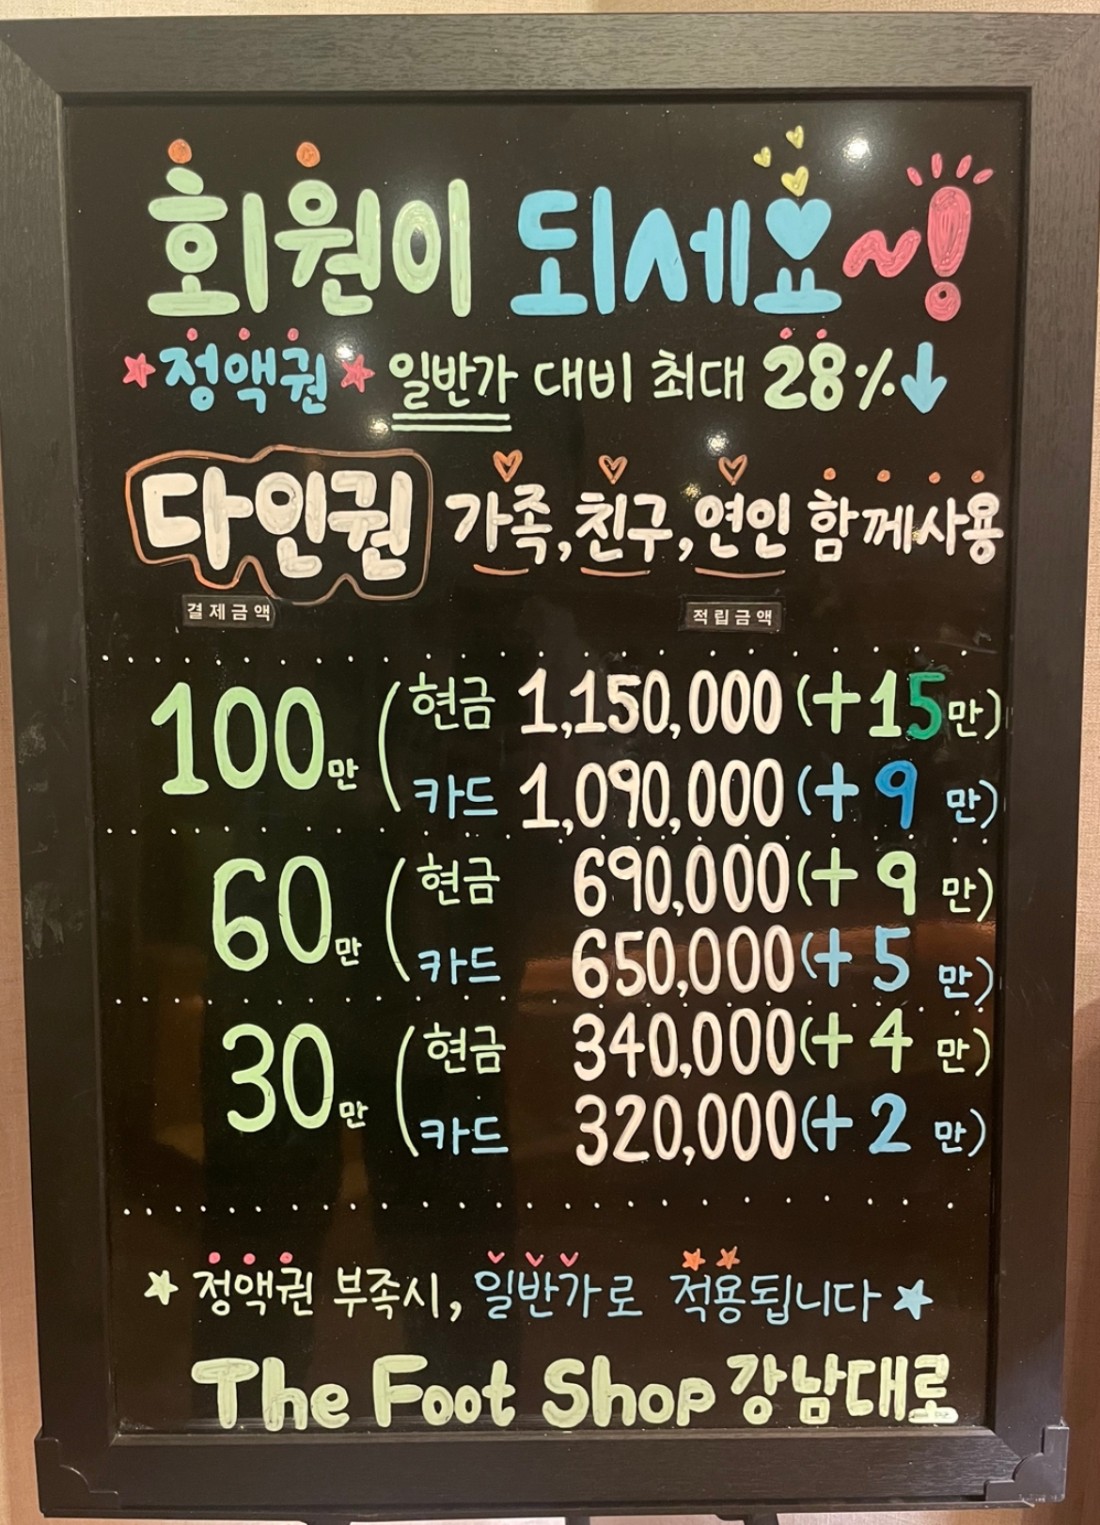 회원이 되세요~!
정액권 일반가 대비 최대 28%↓
다인권 가족,친구,연인 함께사용
결제금액 적립금액
100만 (현금 1,150,000 (+15만)
카드 1,090,000 (+9만)
60만 (현금 690,000 (+9만)
카드 650,000 (+5만)
30만 (현금 340,000 (+4만)
카드 320,000 (+2만)
정액권 부족시, 일반가로 적용됩니다
The Foot Shop 강남대로